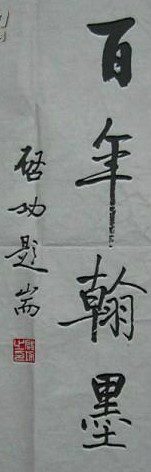 百年翰墨
启功题耑